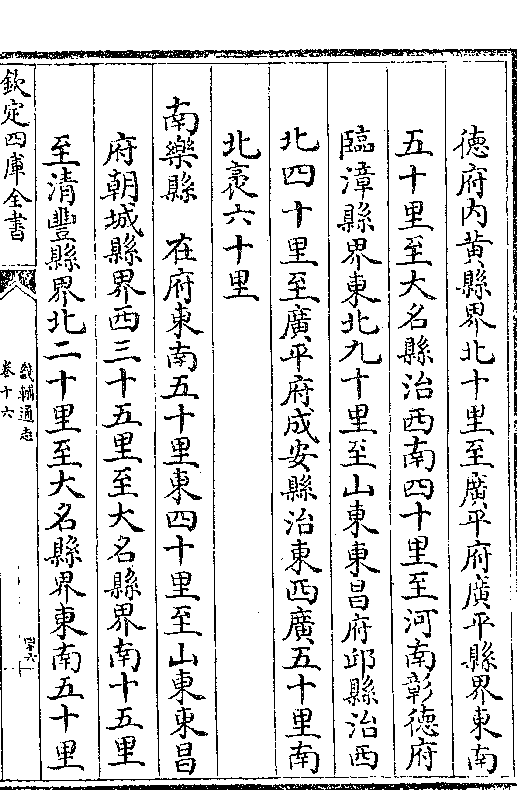 德府内黄縣界北十里至廣平府廣平縣界東南
五十里至大名縣治西南四十里至河南彰德府
臨漳縣界東北九十里至山東東昌府邱縣治西
北四十里至廣平府成安縣治東西廣五十里南
北袤六十里
南樂縣　在府東南五十里東四十里至山東東昌
府朝城縣界西三十五里至大名縣界南十五里
至清豐縣界北二十里至大名縣界東南五十里
欽定四庫全書
畿輔通志
卷十六